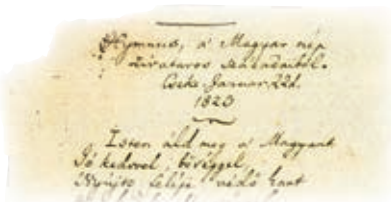 Hymnus, a' Magyar nép
zivataros századaiból.
Cseke Januar. 22d.
1823
Isten áld meg a' Magyart
Jó kedvvel, bőséggel,
Nyújts feléje védő kart